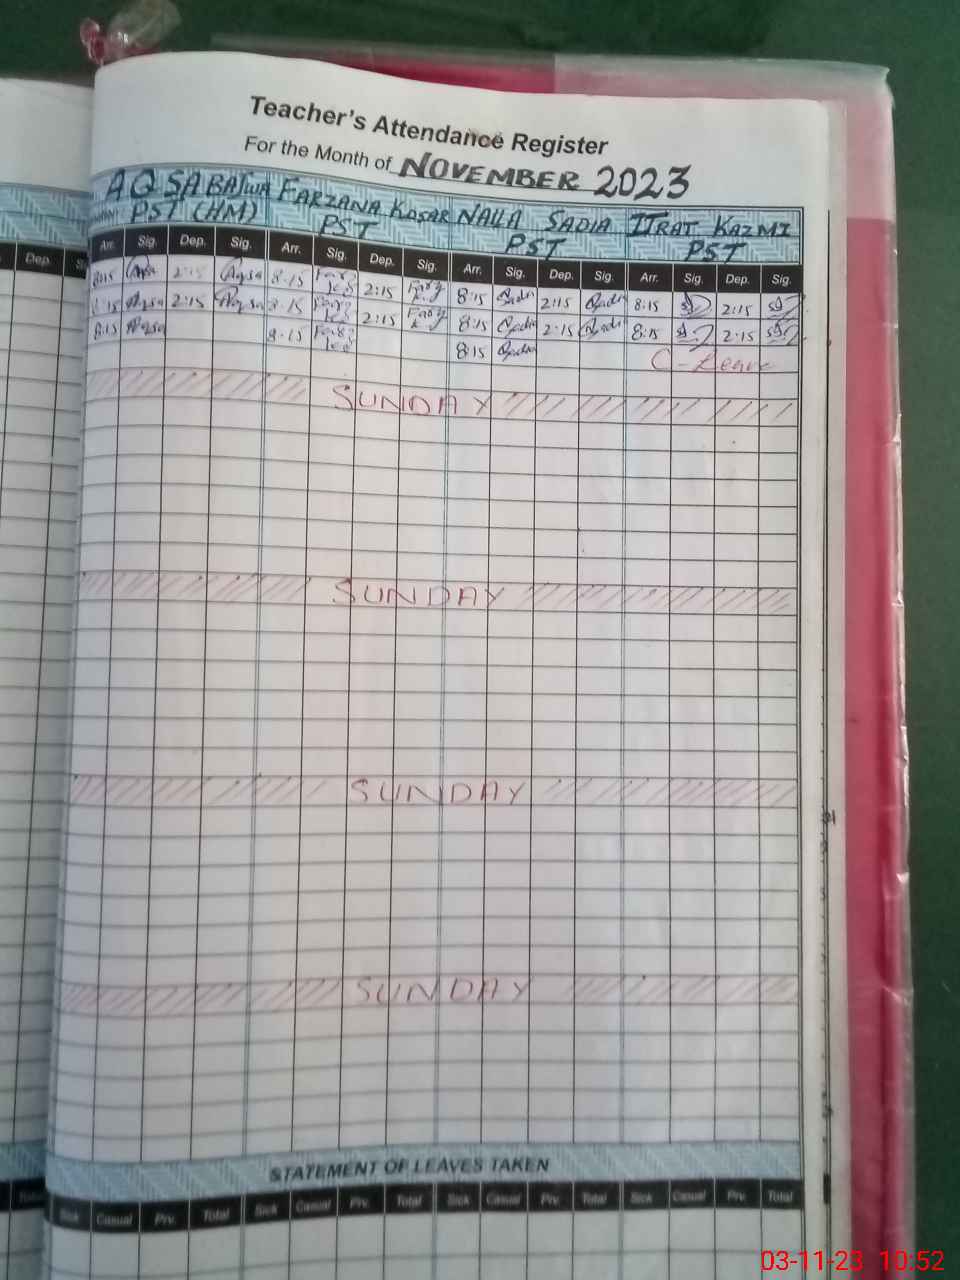 Teacher's Attendance Register
For the Month of NOVEMBER 2023
AQSA BATWA FARZANA KOSAR NAILA SADIA ITRAT KAZMI
PST (HM) PST PST PST
Dep. Arr. Sig. Dep. Sig. Arr. Sig. Dep. Sig. Arr. Sig. Dep. Sig. Arr. Sig. Dep. Sig.
8:15 Aqsa 2:15 Aqsa 8:15 2:15 8:15 2:15 8:15 2:15
8:15 Aqsa 2:15 Aqsa 8:15 2:15 8:15 2:15 8:15 2:15
8:15 Aqsa 8:15 8:15 C-Leave
SUNDAY
SUNDAY
SUNDAY
SUNDAY
STATEMENT OF LEAVES TAKEN
Total Sick Casual Prv. Total Sick Casual Prv. Total Sick Casual Prv. Total Sick Casual Prv. Total
03-11-23 10:52